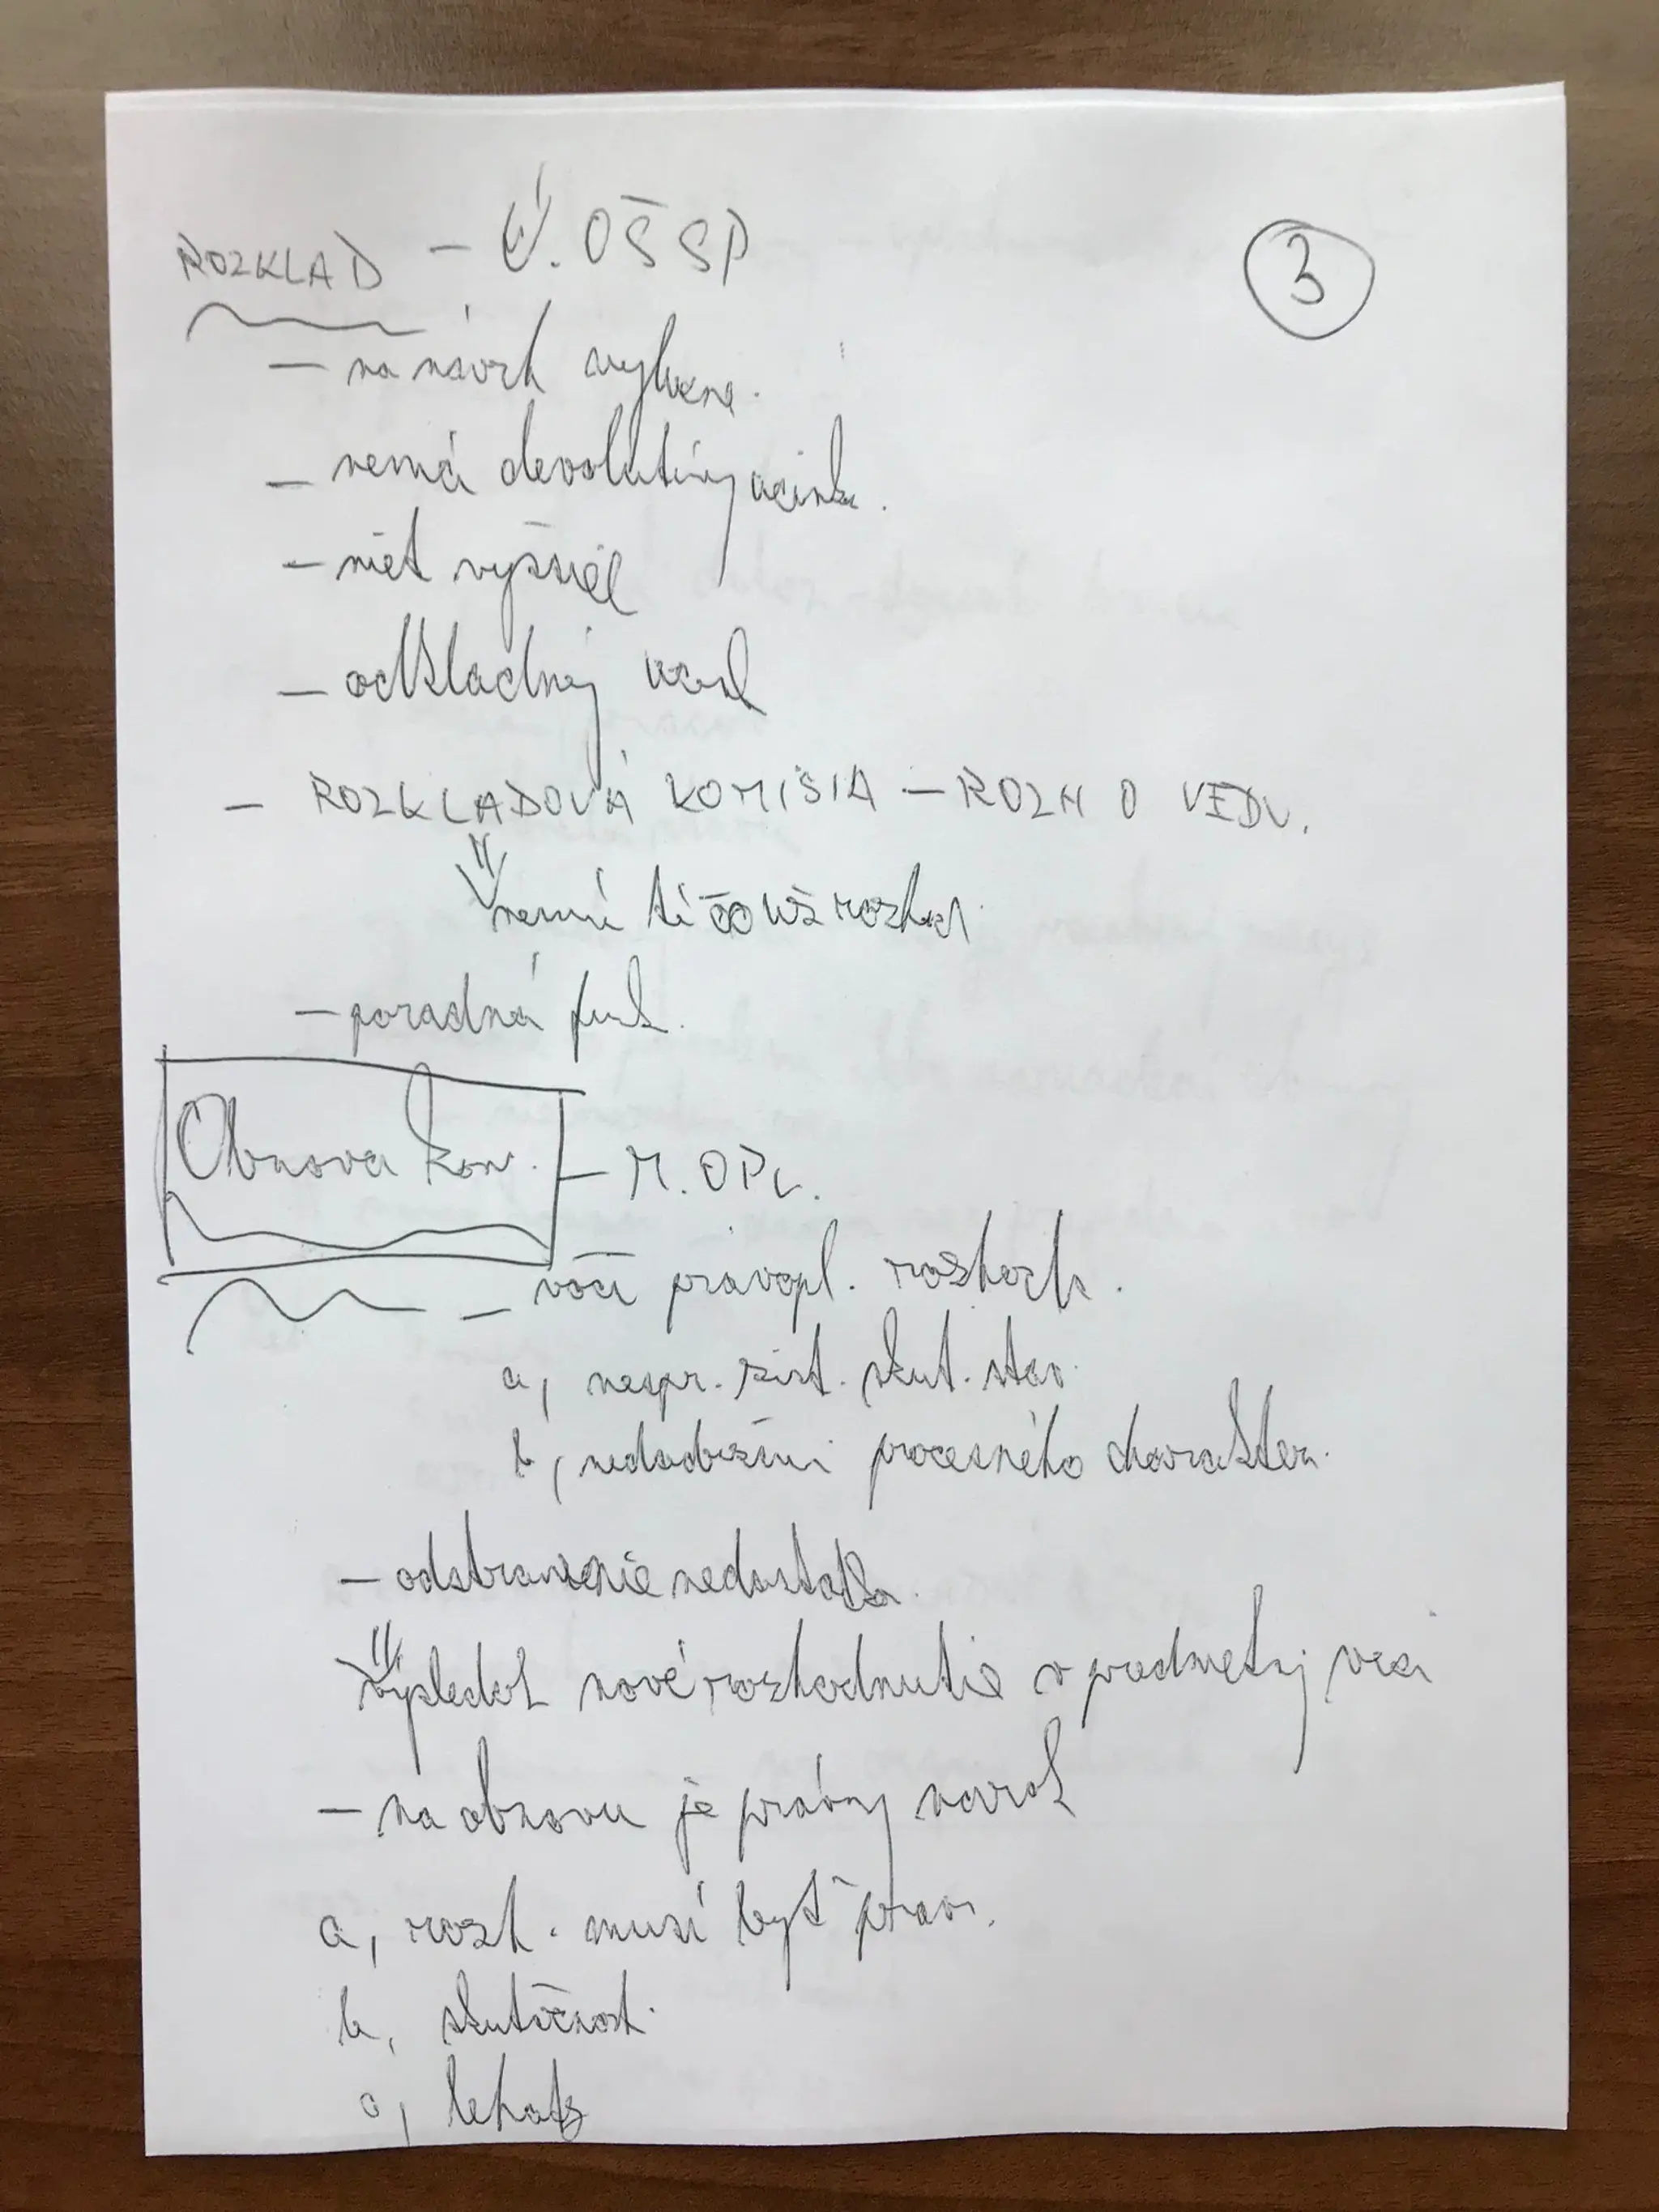 ROZKLAD – Ú. OŠSP
3
– na návrh
– nemá devolutívny účinok.
– niet vyššieh
– odkladný
– ROZKLADOVÁ KOMISIA – ROZH O VEDÚ.
nemá rozhod.
– poradná funk.
Obnova kon. – M. OPR.
– voči právopl. rozhodn.
a, nespr. zist. skut. stav.
b, procesného charakteru.
– odstránenie nedostatku.
výsledok nové rozhodnutie v predmetnej veci
– na obnovu je právny nárok
a, rozh. musí byť práv.
b, skutočnosti.
c, lehota